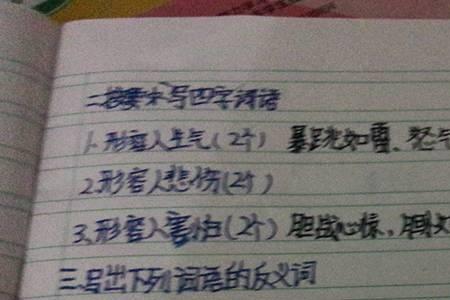 二按要求写四字词语
1.形容人生气(2个) 暴跳如雷、怒气
2.形容人悲伤(2个)
3.形容人害怕(2个) 胆战心惊,胆
三.写出下列词语的反义词